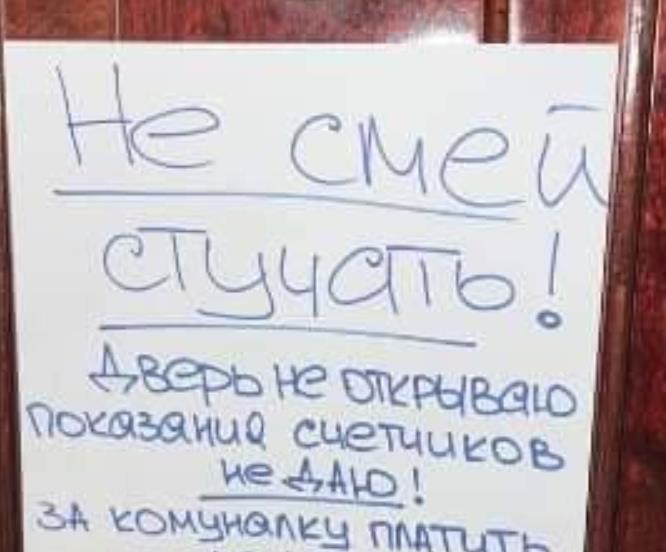 Не смей
стучать!
Дверь не открываю
показания счетчиков
не даю!
за комуналку платить